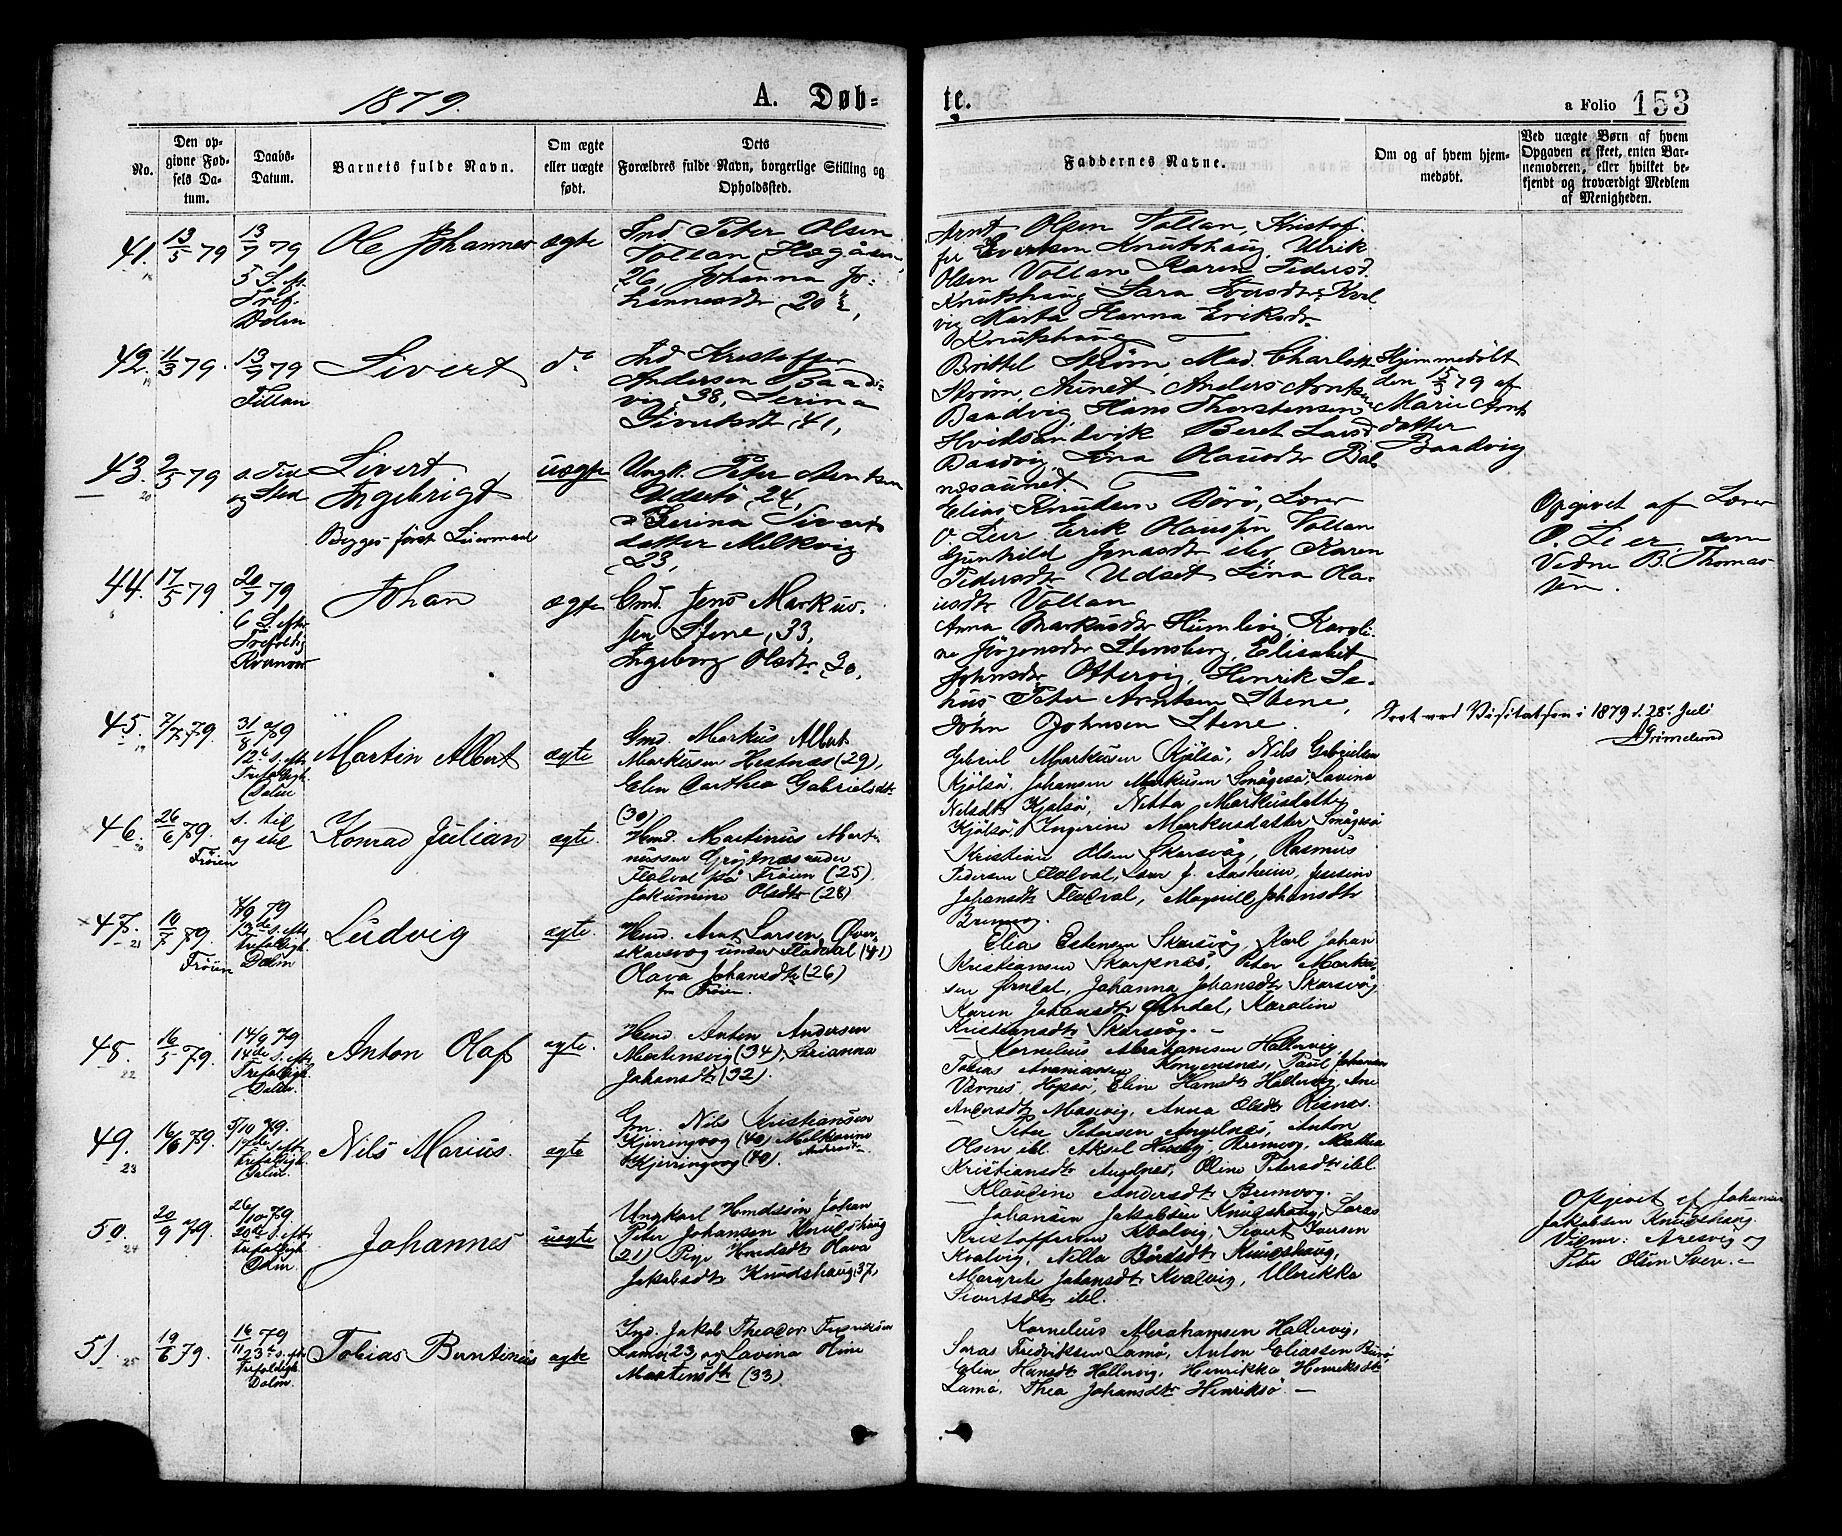 1879.
A. Døb-
te.
a Folio 153
No.
Den op-
givne Fød-
sels Da-
tum.
Daabs-
Datum.
Barnets fulde Navn.
Om ægte
eller uægte
født.
Dets
Forældres fulde Navn, borgerlige Stilling og
Opholdssted.
Faddernes Navne.
Om og af hvem hjem-
medøbt.
Ved uægte Børn af hvem
Opgaven er skeet, enten Bar-
nemoderen, eller hvilket be-
kjendt og troværdigt Medlem
af Menigheden.
41. 13/5 79
13/7 79
5 S. eft.
Tref.
Dolm
Ole Johannes
ægte
Ind. Peter Olsen
Voltan
26, Johanna Jo-
hannesdtr (20
Arnt Olsen Voltan, Kristof-
fer Evertsen Knutshaug, Ulrik
Olsen Voltan Karen Pedersd.
Knutshaug Sara Iversdtr Kval
vig Marta Hanna Eriksdtr.
Knutshaug
42. 11/3 79.
13/7 79
Fillan
Sivert
do
Ind Kristoffer
Andersen Baad-
vig 38, Serina
Sivertsdtr (41,
Strøm, Mad. Charlott
Strøm, Aunet Anders Arntsen
Baadvig Hans Thorstensen
Hvidsandvik Beret Larsd
Baadvig Lina Olausdtr Bal
næsaunet
Hjemmedøbt
den 15/3 79 af
Marie Arnts
datter
Baadvig
43. 2/5 79
s. Tid
og Sted
Sivert
Ingebrigt
Begges første Leiermaal
uægte
Ungk. Peter Arntsen
Udsetø, 24,
Serina Siverts
datter Melkvig
(23,
Elias Knudsen Børø, Lærer
O. Leer, Erik Olaussøn Voltan
Gunhild Jonasdtr Karen
Pedersdtr Udset Lina Ola-
usdtr Voltan
Opgivet af Lærer
O. Leer som
Vidne B. Thomas-
sen.
44. 17/5 79
20/7 79
6 S. efter
Trefoldig
Kvenvær
Johan
ægte
Gmd. Jens Markus-
sen Stene, 33,
Ingeborg Olsdtr. 30,
Anna Markusdtr Humlvig Karoli-
ne Jørgensdtr Stensberg, Elisabet
Johnsdtr Ottervig, Henrik Se-
hus Peter Arntsen Stene,
John Johnsen Stene.
Seet ved Visitatsen i 1879 d. 28de Juli
AGrimelund
45. 7/7 79
31/8 79
12te s. eft.
Trefoldigh.
Dolm
Martin Albert
ægte
Gmd. Markus Albert
Markussen Hestnæs (29),
Elen Carthea Gabrielsdtr
(30)
Gabriel Markussen Kjølsø, Nils Gabrielsen
Kjølsø, Johansen Markusen Smågesø, Lavina
Nilsdtr Kjølsø, Nikka Markusdatter
Kjølsø, Ingerine Markusdatter Smågesø
46. 26/6 79.
s. tid
og sted
Frøien
Konrad Julian
ægte
Hmd. Martinus Marti-
nussen Grøtnæs under
Fladval på Frøien (25)
Jakumine Olsdtr (28)
Kristian Olsen Skarsvåg, Rasmus
Pedersen Fladval, Lars J. Aasheim, Jesine
Johansdtr Fladval, Magnild Johansdtr
Bremvog.
47. 10/7 79.
Frøien
13de s. eft.
Trefoldigh
Dolm
Ludvig
ægte.
Hmd. Arnt Larsen, Over-
skarsvog under Fladval (41)
Olava Johansdtr (26)
fra Frøien.
Elias Estensen Skarsvåg, Karl Johan
Kristiansen Skarpnes, Peter Marku-
sen Ørndal, Johanna Johansdtr Skarsvåg,
Karen Johansdtr Ørndal, Karoline
Kristiansdtr Skarsvåg.
48. 16/5 79.
14/9 79
14de s. eft.
Trefoldigh.
Dolm.
Anton Olaf
ægte.
Hmd Anton Andersen
Mortensvig (34), Arianna
Johansdtr (32).
Kornelius Abrahamsen Hallervig
Tobias Kongensvæ, Paul Johansen
Værnes, Hopsø, Eline Hansdtr Hallervog, Ane
Andersdtr Masevig, Anna Olsdtr Risnes.
49. 16/6 79.
5/10 79.
17de s. eft.
Trefoldigh.
Dolm.
Nils Marius.
ægte
Gm. Nils Kristiansen
Kjerringvog (40) Melkarine
Andersdtr
Kjerringvog (40).
Peter Petersen Angelnes, Anton
Olsen ibl. Aksel Husby, Bremvog, Mattea
Kristiansdtr Angelnes, Oline Petersdtr ibl.
Klaudine Andersdtr Bremvog.
50. 20/9 79.
26/10 79
20de s. eft.
Trefoldigh.
Dolm
Johannes
uægte
Ungkarl Hmdssøn Johan
Peter Johansen Knudshaug
(21) Pige Hmdsdtr Olava
Jakobsdtr Knudshaug 37,
Johansen Jakobsen Knudshaug, Lars
Kristoffersen Kvalvig, Sivert Iversen
Kvalvig, Nella Bårdsdtr Knudshaug,
Margrete Johansdtr Kvalvig, Ulrikka
Sivertsdtr ibl.
Opgivet af Johansen
Jakobsen Knudshaug.
Vidner: Aresvig og
Peter Olsen Sven.
51. 19/6 79.
16/11 79
23de s. eft.
Trefoldigh.
Dolm.
Tobias Berntinus
ægte
Ind. Jakob Theodor Fredriksen
Lamø 23, og Lavina Oline
Mortensdtr (33)
Kornelius Abrahamsen Hallervig,
Lars Fredriksen Lamø, Anton Eliassen Børø
Elen Hansdtr Hallervig, Henrikka Henriksdtr
Lamø, Thea Johansdtr Henriksø.